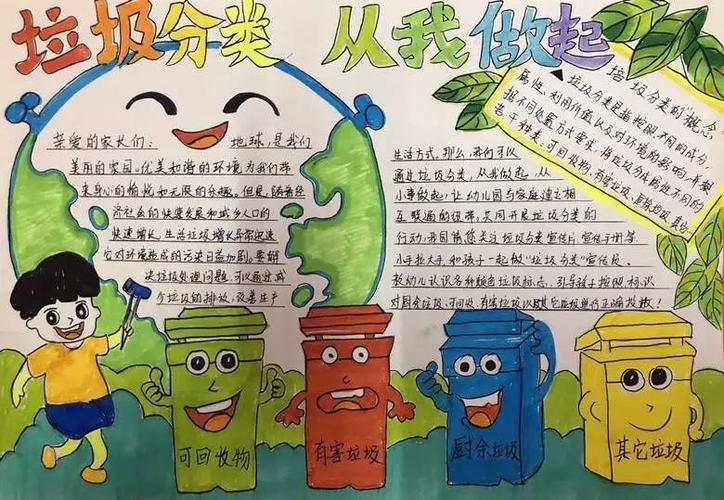 垃圾分类 从我做起
亲爱的家长们：
地球，是我们
美丽的家园。优美和谐的环境为我们带
来身心的愉悦和无限的乐趣。但是，随着经
济社会的快速发展和城乡人口的
快速增长，生活垃圾增长异常迅速
它对环境造成的污染日益加剧。要解
决垃圾处理问题，可以通过减
少垃圾的排放，改善生产
生活方式，那么，我们可以
通过垃圾分类，从我做起，从
小事做起，让幼儿园与家庭建立相
互联通的纽带，共同开展垃圾分类的
行动，我园请您关注垃圾分类宣传片、宣传手册等。
小手拉大手，和孩子一起做"垃圾分类"宣传员。
教幼儿认识各种颜色垃圾标志，引导孩子按照标识
对厨余垃圾、可回收、有害垃圾以及其它垃圾进行正确投放！
垃圾分类的"概念"
垃圾分类是指按照不同的成分、
属性、利用价值以及对环境的影响，并根
据不同处置方式要求，将垃圾分成属性不同的
若干种类：可回收物，有害垃圾，厨余垃圾，其它
可回收物
有害垃圾
厨余垃圾
其它垃圾